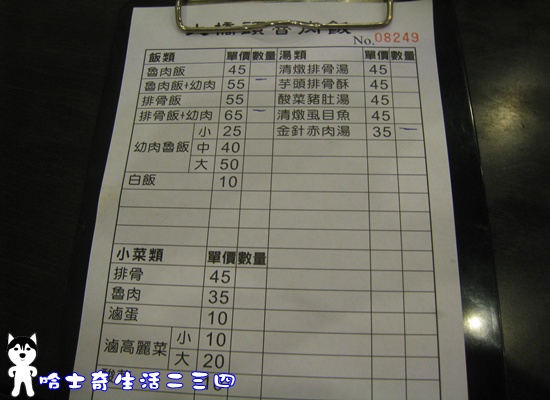 大橋頭魯肉飯
No.08249
飯類 單價 數量 湯類 單價 數量
魯肉飯 45 一 清燉排骨湯 45
魯肉飯+幼肉 55 一 芋頭排骨酥 45
排骨飯 55 酸菜豬肚湯 45
排骨飯+幼肉 65 一 清燉虱目魚 45
幼肉魯飯 小 25 金針赤肉湯 35 一
中 40
大 50
白飯 10
小菜類 單價 數量
排骨 45
魯肉 35
滷蛋 10
滷高麗菜 小 10
大 20
哈士奇生活二三四